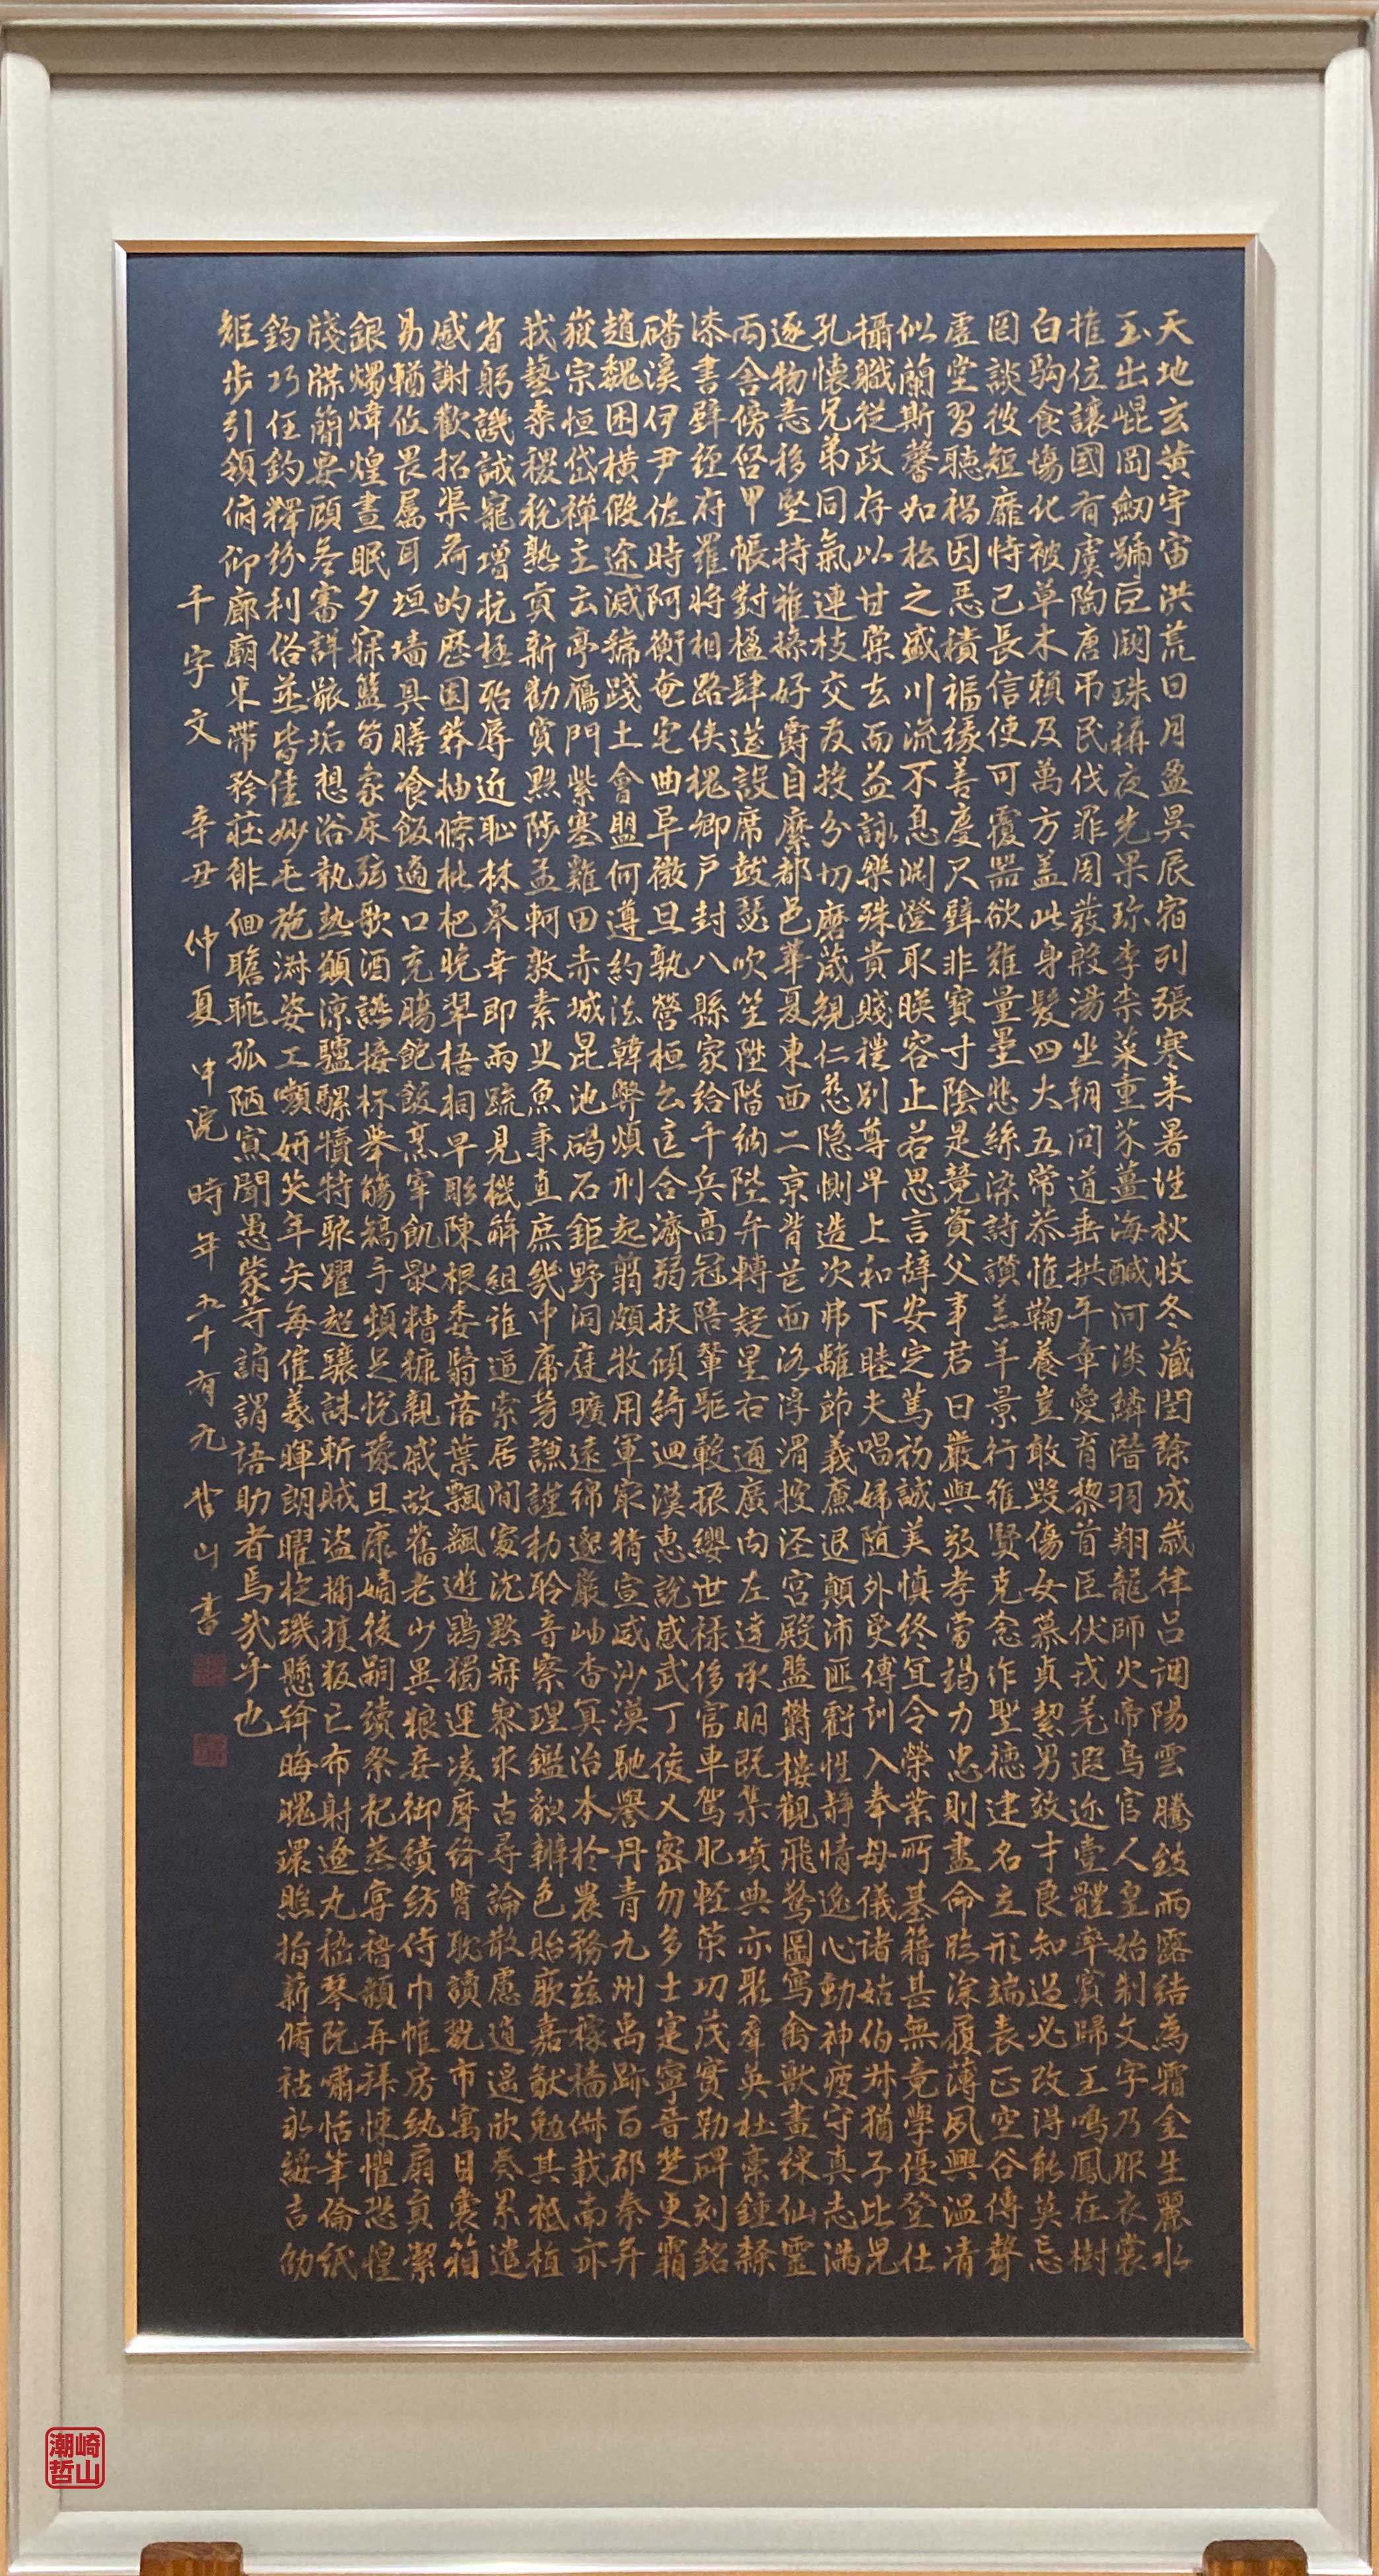 天地玄黄宇宙洪荒日月盈昃辰宿列張寒来暑往秋收冬蔵閏餘成歳律呂調陽雲騰致雨露結為霜金生麗水
玉出崐岡劔號巨闕珠稱夜光果珍李柰菜重芥薑海鹹河淡鱗潜羽翔龍師火帝鳥官人皇始制文字乃服衣裳
推位讓國有虞陶唐弔民伐罪周發殷湯坐朝問道垂拱平章愛育黎首臣伏戎羌遐迩壹體率賓歸王鳴鳳在樹
白駒食場化被草木賴及萬方盖此身髮四大五常恭惟鞠養豈敢毀傷女慕貞絜男效才良知過必改得能莫忘
罔談彼短靡恃己長信使可覆器欲難量墨悲絲染詩讃羔羊景行維賢克念作聖德建名立形端表正空谷傳聲
虚堂習聽禍因惡積福縁善慶尺璧非寶寸陰是競資父事君曰嚴與敬孝當竭力忠則盡命臨深履薄夙興温凊
似蘭斯馨如松之盛川流不息淵澄取暎容止若思言辭安定篤初誠美慎終宜令榮業所基籍甚無竟學優登仕
攝職從政存以甘棠去而益詠樂殊貴賤禮別尊卑上和下睦夫唱婦随外受傅訓入奉母儀諸姑伯叔猶子比兒
孔懐兄弟同氣連枝交友投分切磨箴規仁慈隐惻造次弗離節義廉退顛沛匪虧性静情逸心動神疲守真志満
逐物意移堅持雅操好爵自縻都邑華夏東西二京背芒面洛浮渭據涇宮殿盤欝樓觀飛驚圖寫禽獸畫綵仙靈
丙舎傍啓甲帳對楹肆筵設席鼓瑟吹笙陞階納陛弁轉疑星右通廣内左達承明既集墳典亦聚羣英杜稾鍾隸
漆書壁經府羅将相路俠槐卿戸封八縣家給千兵高冠陪輦驅轂振纓世禄侈富車駕肥軽策功茂實勒碑刻銘
磻溪伊尹佐時阿衡奄宅曲阜微旦孰營桓公匡合濟弱扶傾綺迴漢惠説感武丁俊乂密勿多士寔寧晉楚更霸
趙魏困横假途滅虢踐土會盟何遵約法韓弊煩刑起翦頗牧用軍最精宣威沙漠馳譽丹青九州禹跡百郡秦并
嶽宗恒岱禪主云亭鴈門紫塞雞田赤城昆池碣石鉅野洞庭曠遠綿邈巖岫杳冥治本於農務茲稼穡俶載南畝
我藝黍稷税熟貢新勸賞黜陟孟軻敦素史魚秉直庶幾中庸勞謙謹勑聆音察理鑑貌辨色貽厥嘉猷勉其祗植
省躬譏誡寵增抗極殆辱近恥林皋幸即兩疏見機解組誰逼索居閒處沈黙寂寥求古尋論散慮逍遥欣奏累遣
慼謝歡招渠荷的歴園莽抽條枇杷晩翠梧桐早彫陳根委翳落葉飄颻遊鵾獨運凌摩絳霄耽讀翫市寓目囊箱
易輶攸畏屬耳垣墻具膳飡飯適口充腸飽飫烹宰飢猒糟糠親戚故舊老少異粮妾御績紡侍巾帷房紈扇員潔
銀燭煒煌晝眠夕寐籃笋象床弦歌酒讌接杯舉觴矯手頓足悦豫且康嫡後嗣續祭祀蒸甞稽顙再拜悚懼恐惶
牋牒簡要顧答審詳骸垢想浴執熱願涼驢騾犢特駭躍超驤誅斬賊盗捕獲叛亡布射遼丸嵇琴阮嘯恬筆倫紙
鈞巧任釣釋紛利俗並皆佳妙毛施淑姿工嚬妍笑年矢毎催羲暉朗曜旋璣懸斡晦魄環照指薪脩祜永綏吉劭
矩歩引領俯仰廊廟束帯矜莊徘徊瞻眺孤陋寡聞愚蒙等誚謂語助者焉哉乎也
千字文 辛丑 仲夏 中浣 時年五十有九 哲山書
潮崎哲山